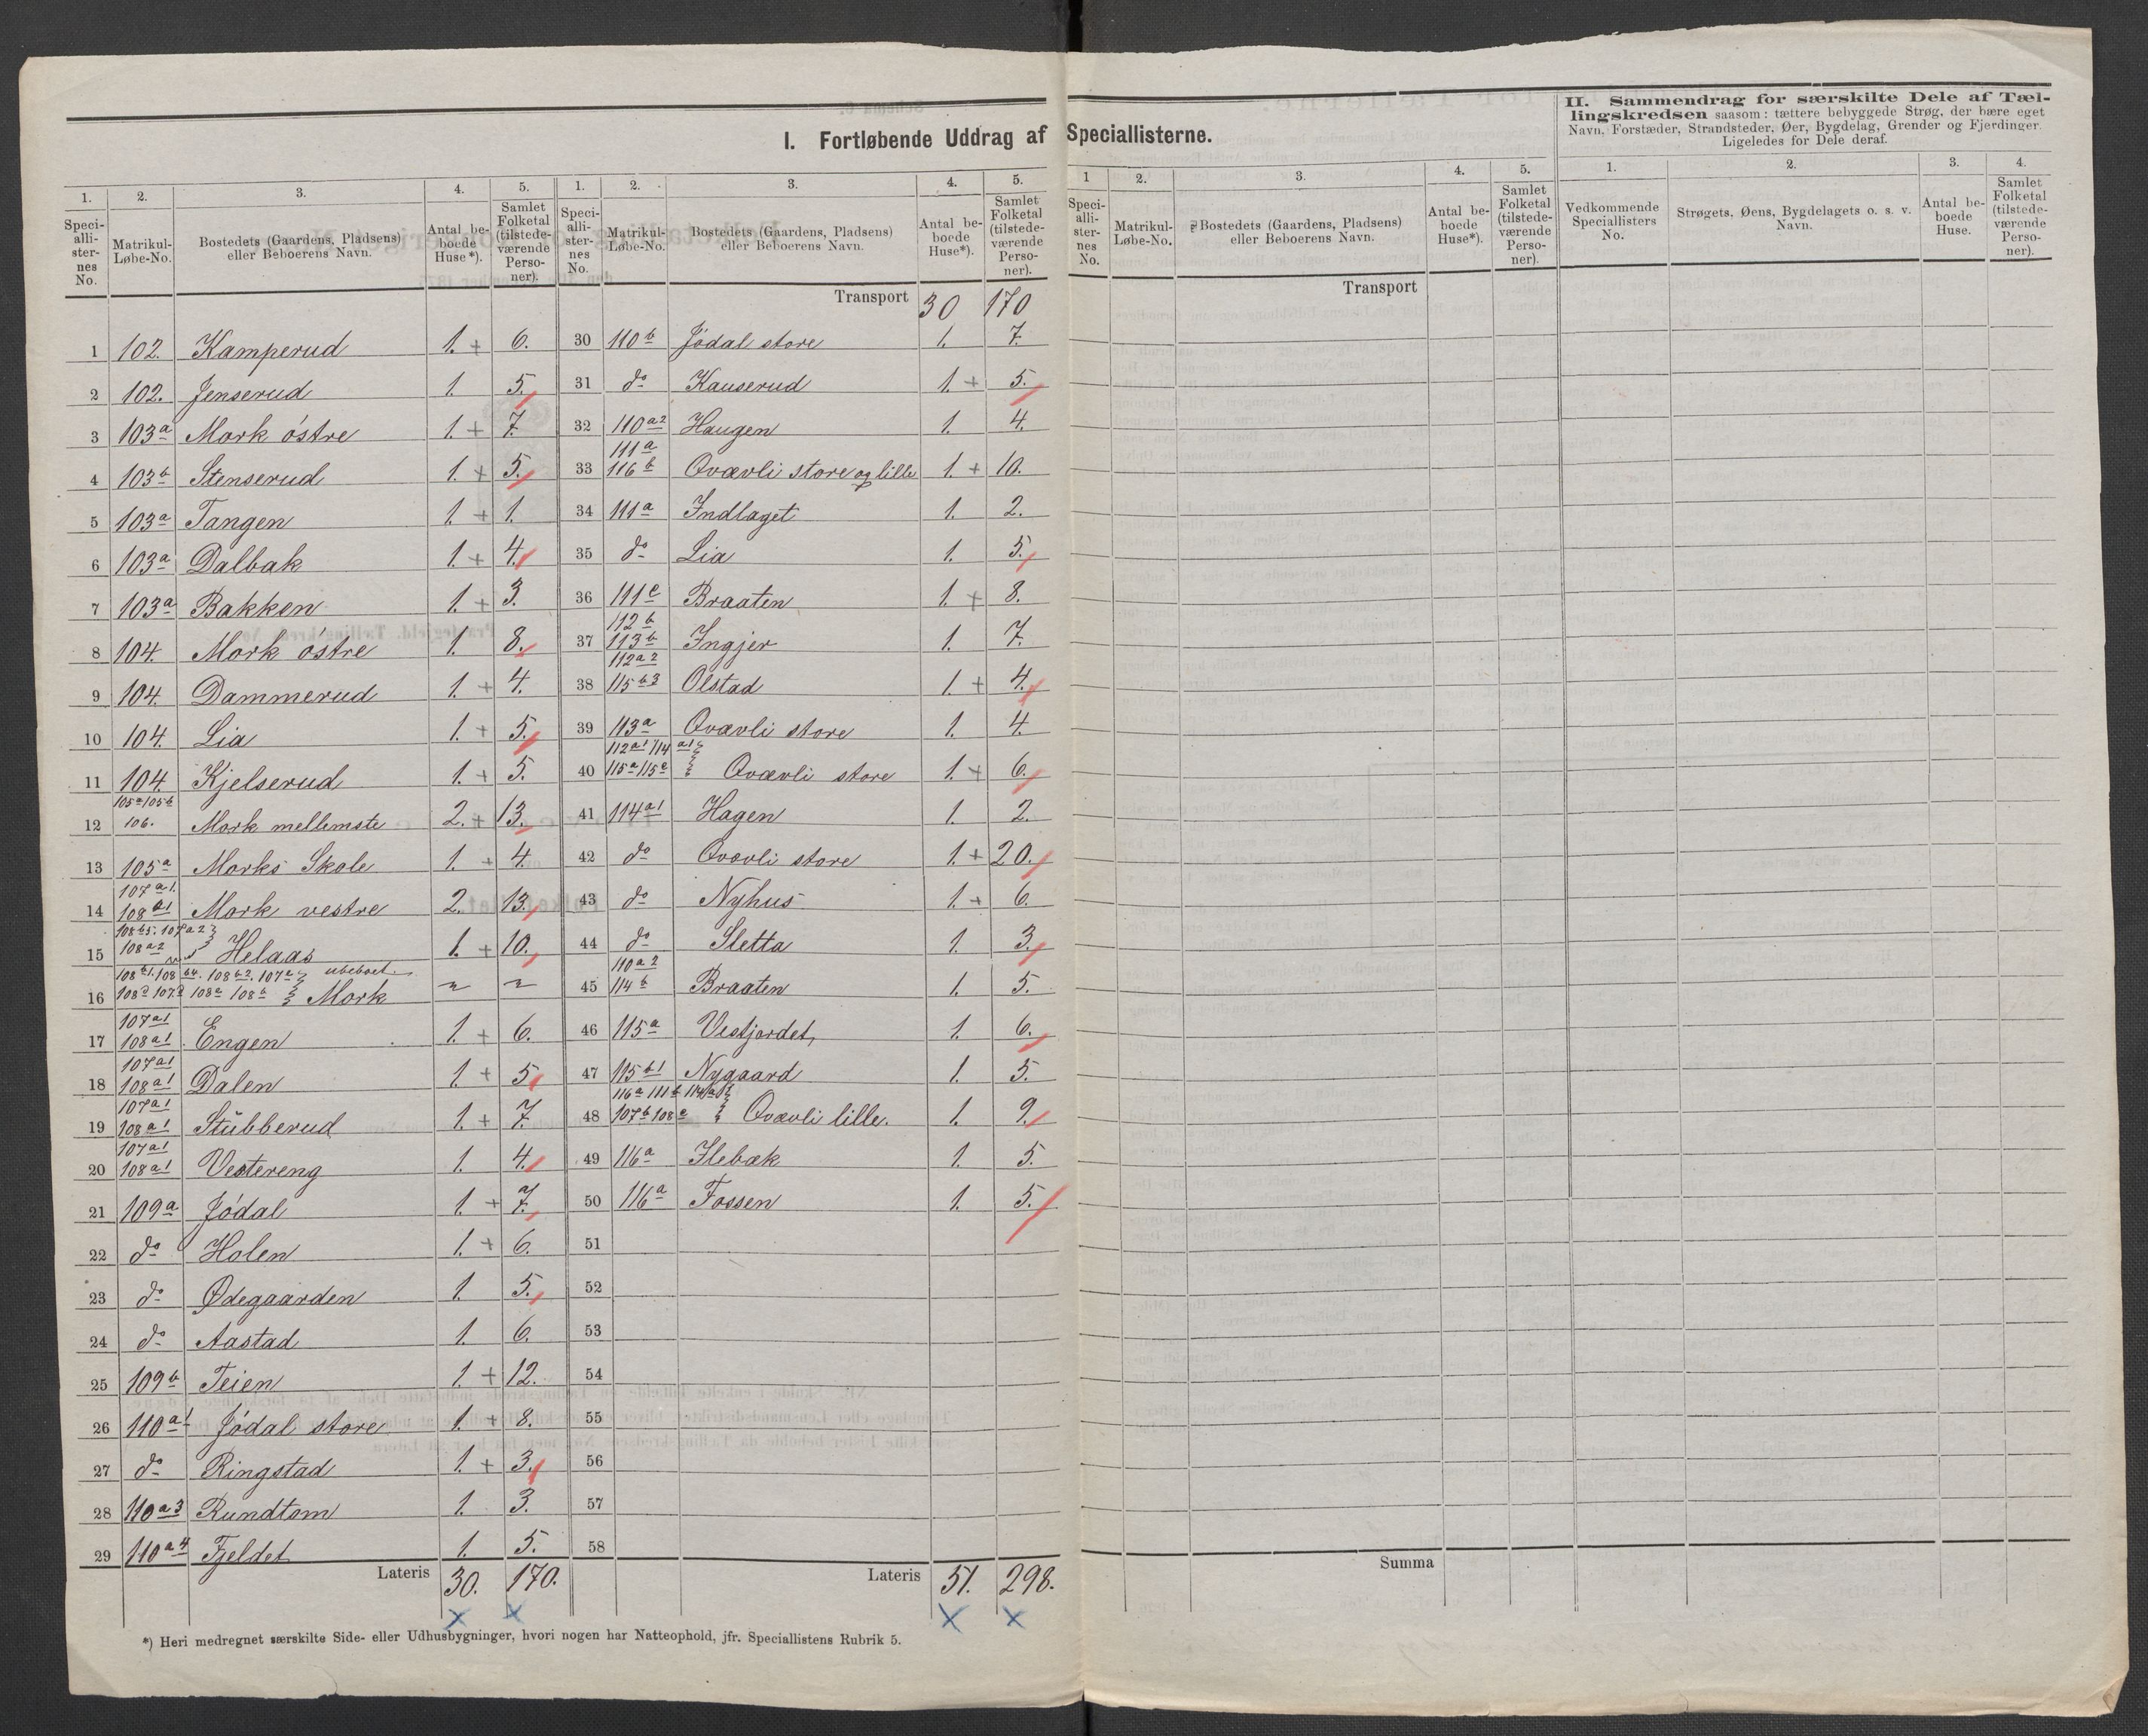 I. Fortløbende Uddrag af Speciallisterne.
1. 2. 3. 4. 5. 1. 2. 3. 4. 5.
Speciallisternes No. Matrikul-Løbe-No. Bostedets (Gaardens, Pladsens) eller Beboerens Navn. Antal beboede Huse*). Samlet Folketal (tilstedeværende Personer).
Speciallisternes No. Matrikul-Løbe-No. Bostedets (Gaardens, Pladsens) eller Beboerens Navn. Antal beboede Huse*). Samlet Folketal (tilstedeværende Personer).
1 102. Kamperud 1. + 6.
2 102. Jenserud 1. 5.
3 103a Mork östre 1. + 7.
4 103b Stenserud 1. + 5.
5 103a Tangen 1. + 1.
6 103a Dalbak 1. + 4.
7 103a Bakken 1. + 3.
8 104. Mork östre 1. 8.
9 104. Dammerud 1. + 4.
10 104. Lia 1. + 5.
11 104. Kjelserud 1. + 5.
12 105a 105b 106. Mork mellemste 2. + 13.
13 105a Morks Skole 1. + 4.
14 107a1. 108a1 Mork vestre 2. 13.
15 108b5. 107a2 108a2 Helaas 1. + 10.
16 Mork ubeboet
17 107a1 108a1 Engen 1. + 6.
18 107a1 108a1 Dalen 1. + 5.
19 107a1 108a1 Stŭbberud 1. + 7.
20 107a1 108a1 Vestereng 1. 4.
21 109a Jódal 1. + 7.
22 do Holen 1. + 6.
23 do Ødegaarden 1. 5.
24 do Aastad 1. 6.
25 109b Teien 1. + 12.
26 110a1 Jódal store 1. + 8.
27 do Ringstad 1. + 3.
28 110a3 Rundtom 1. 3.
29 110a4 Fjeldet 1. 5.
Lateris 30. 170.
Transport 30 170
30 110b Jödal store 1. 7.
31 do Kauserud 1. + 5.
32 110a2 Haugen 1. 4.
33 111a 116b Qvævli store og lille 1. + 10.
34 111a Indlaget 1. 2.
35 do Lia 1. 5.
36 111c Braaten 1. + 8.
37 112b 113b Ingjer 1. 7.
38 112a2 115b3 Olstad 1. + 4.
39 113a Qvævli store 1. 4.
40 112a1 114a1 115a 115c Qvævli store 1. + 6.
41 114a1 Hagen 1. 2.
42 do Qvævli store 1. + 20.
43 do Nyhus 1. + 6.
44 do Sletta 1. 3.
45 110a2 114b Braaten 1. 5.
46 115a Vestjordet, 1. 6.
47 115b1 Nygaard 1. 5.
48 116a 111b 107b 108c Qvævli lille. 1. 9.
49 116a Ilebæk 1. 5.
50 116a Fossen 1. 5.
51
52
53
54
55
56
57
58
Lateris 51. 298.
*) Heri medregnet særskilte Side- eller Udhusbygninger, hvori nogen har Natteophold, jfr. Speciallistens Rubrik 5.
1 2. 3. 4. 5.
Speciallisternes No. Matrikul-Løbe-No. Bostedets (Gaardens, Pladsens) eller Beboerens Navn. Antal beboede Huse*). Samlet Folketal (tilstedeværende Personer).
Transport
Summa
II. Sammendrag for særskilte Dele af Tæl-
lingskredsen saasom: tættere bebyggede Strøg, der bære eget
Navn, Forstæder, Strandsteder, Øer, Bygdelag, Grender og Fjerdinger.
Ligeledes for Dele deraf.
1. 2. 3. 4.
Vedkommende Speciallisters No. Strøgets, Øens, Bygdelagets o. s. v. Navn. Antal beboede Huse. Samlet Folketal (tilstedeværende Personer).